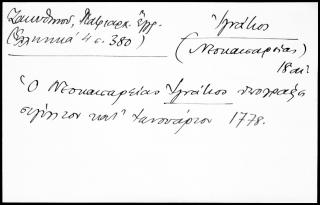 Ζακυθηνοῦ, Πατριαρχ. Ἔγγρ.
(Ἑλληνικά 4 σ. 380)
Ἰγνάτιος
(Νεοκαισαρείας)
18 αἰ.
Ὁ Νεοκαισαρείας Ἰγνάτιος ὑπογράφει
σιγίλλιον κατ' Ἰανουάριον 1778.